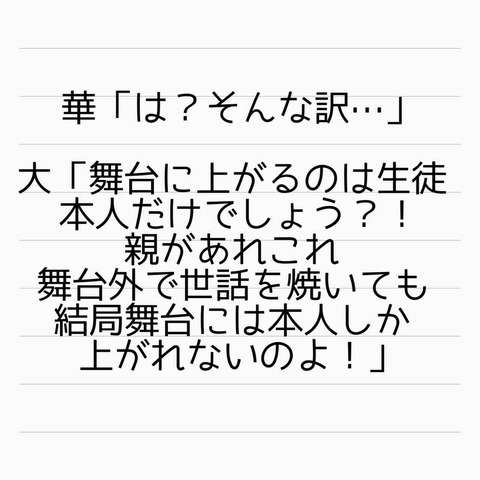 華「は？そんな訳…」
大「舞台に上がるのは生徒
本人だけでしょう？！
親があれこれ
舞台外で世話を焼いても
結局舞台には本人しか
上がれないのよ！」